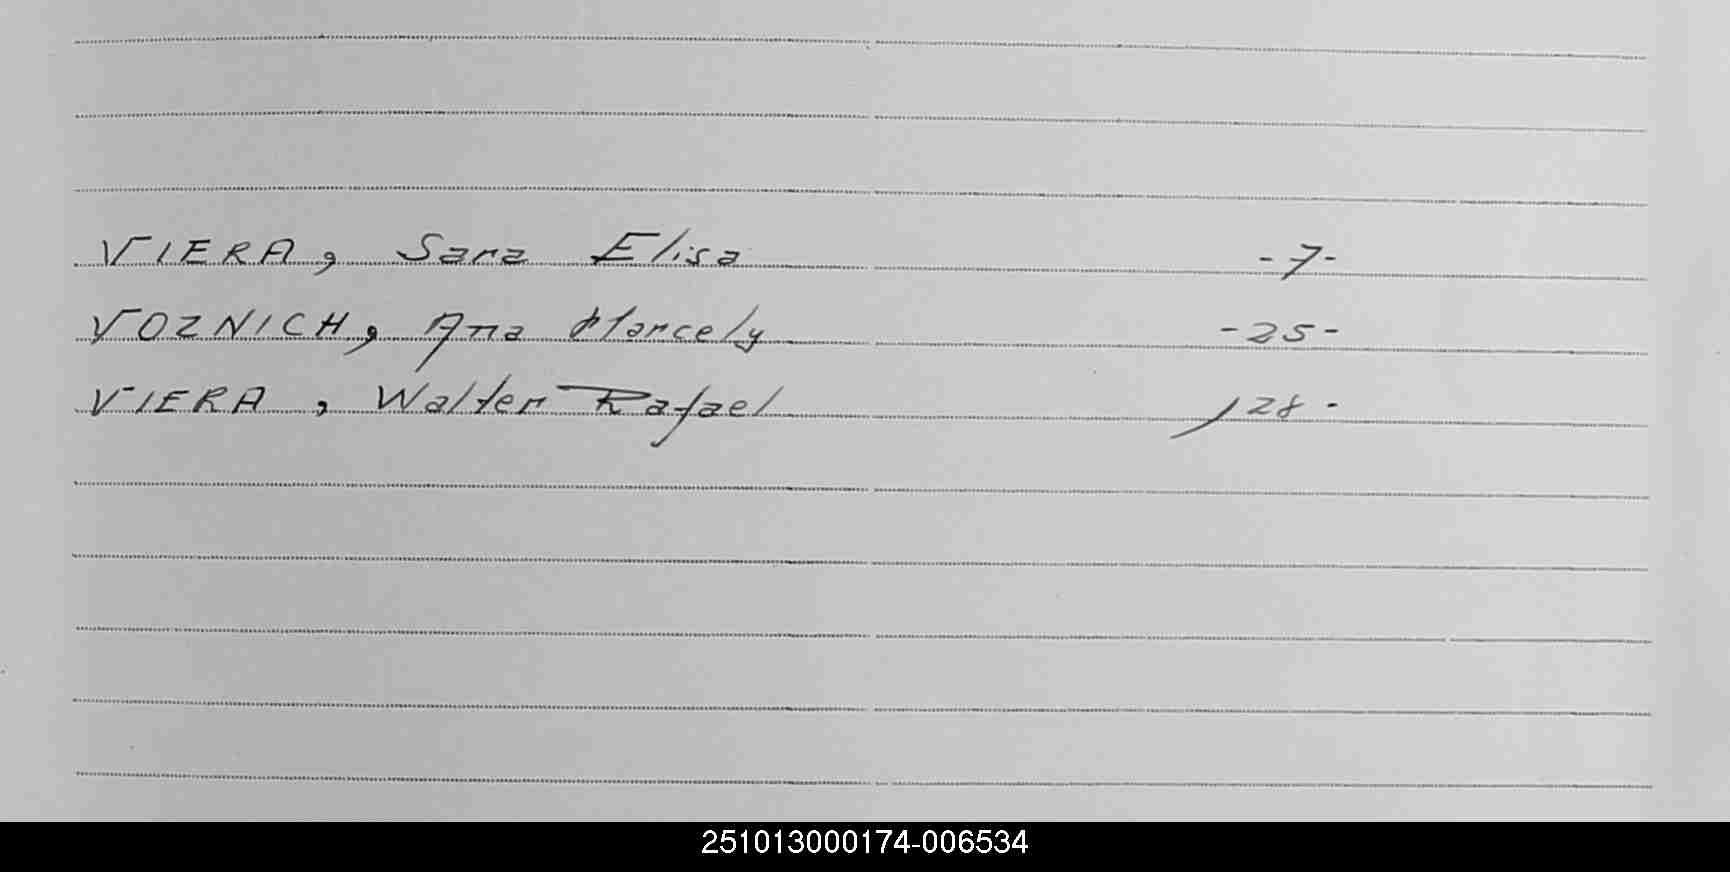 VIERA, Sara Elisa -7-
VOZNICH, Ana Marcely -25-
VIERA, Walter Rafael 28-
251013000174-006534